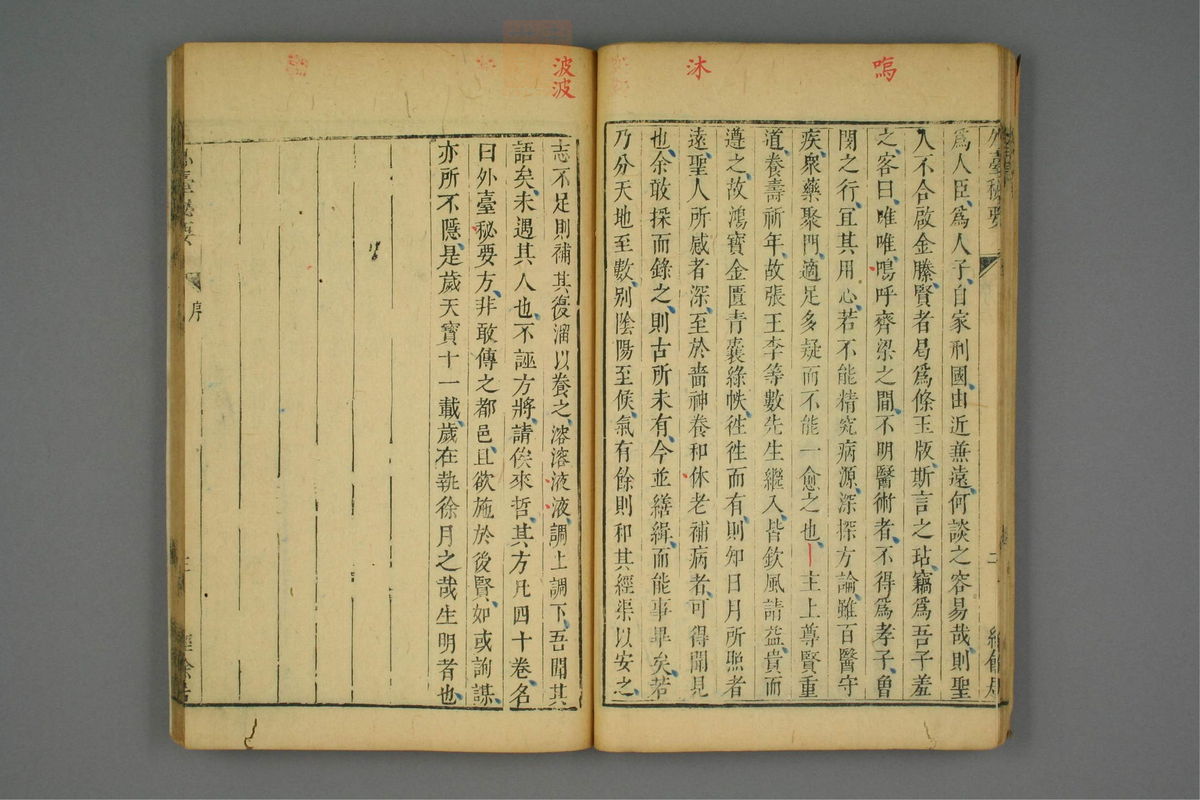 嗚
沐
外臺秘要
二
爲人臣爲人子自家刑國由近兼遠何談之容易哉則聖
人不合啟金縢賢者曷爲條玉版斯言之玷竊爲吾子羞
之客曰唯唯嗚呼齊梁之間不明醫術者不得爲孝子魯
閔之行宜其用心若不能精究病源深探方論雖百醫守
疾衆藥聚門適足多疑而不能一愈之也主上尊賢重
道養壽祈年故張王李等數先生繼入皆欽風請益貴而
遵之故鴻寶金匱青囊綠帙徃徃而有則知日月所照者
遠聖人所感者深至於嗇神養和休老補病者可得聞見
也余敢採而錄之則古所未有今並繕緝而能事畢矣若
乃分天地至數別陰陽至候氣有餘則和其經渠以安之
波波
志不足則補其復溜以養之溶溶液液調上調下吾聞其
語矣未遇其人也不誣方將請俟來哲其方凡四十卷名
曰外臺秘要方非敢傳之都邑且欲施於後賢如或詢謀
亦所不隱是歲天寶十一載歲在執徐月之哉生明者也
序
三